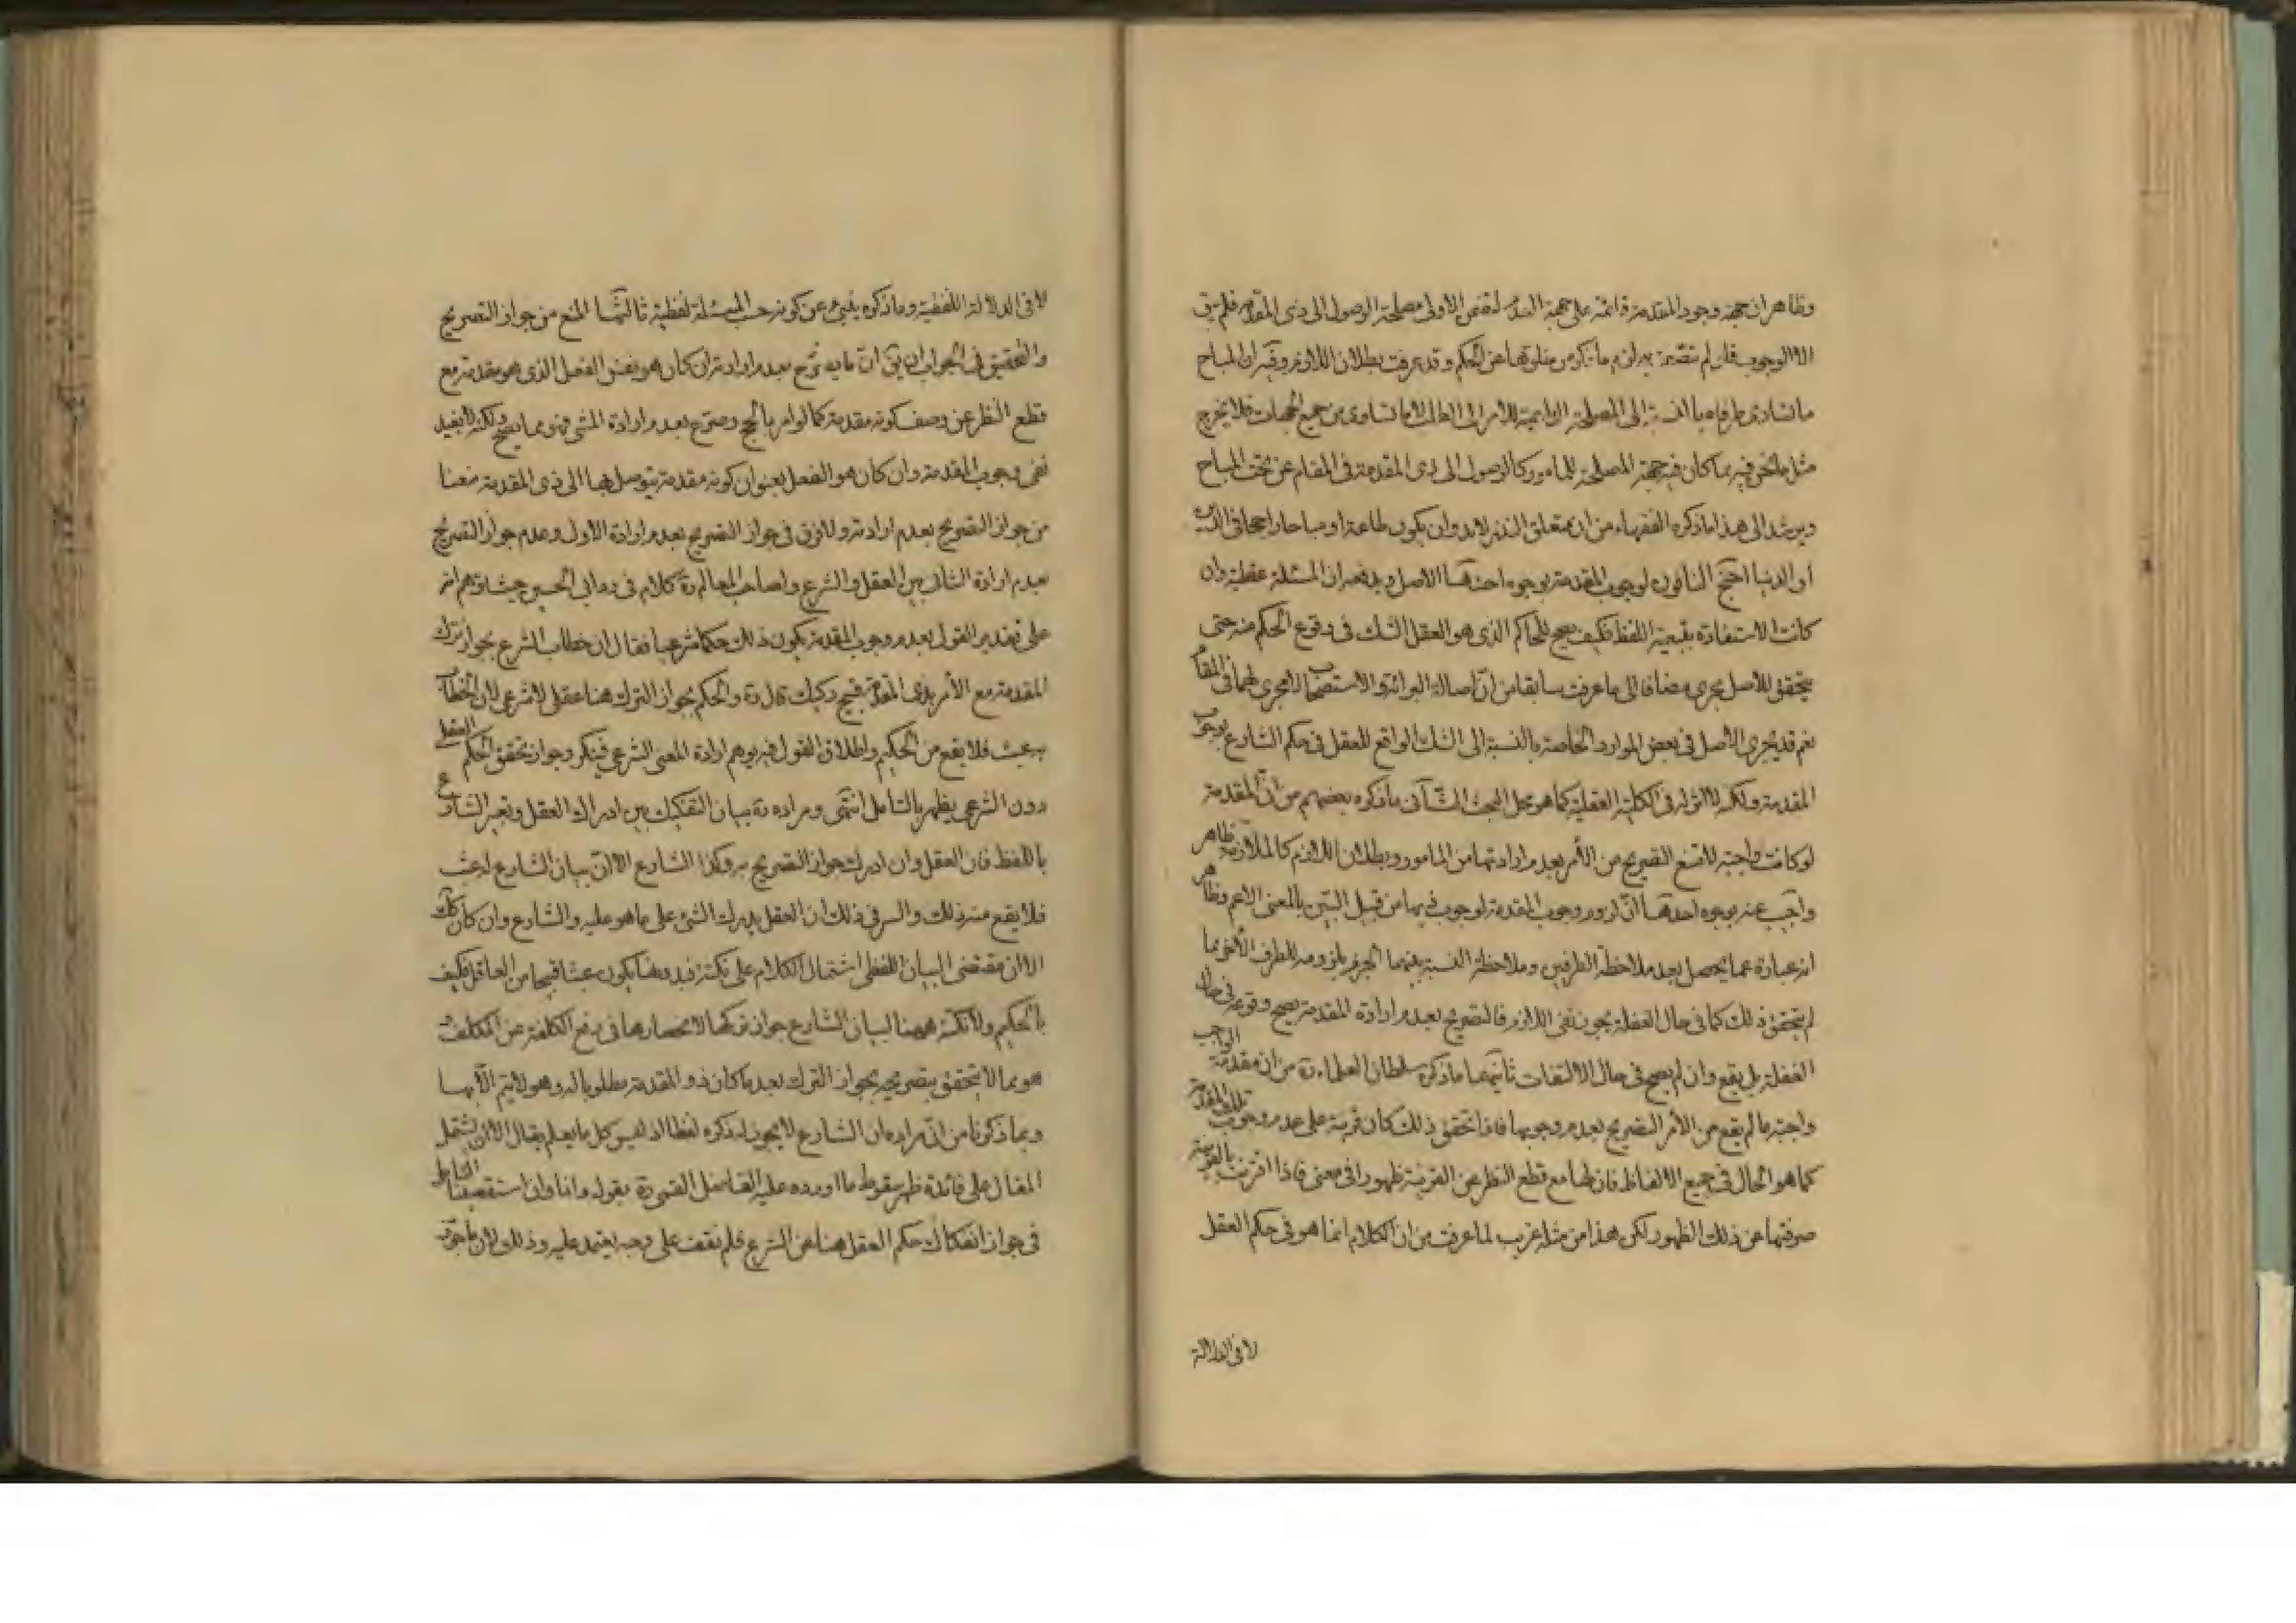 وظاهر ان جهة وجود المقدمة قائمة على جهة العدم لتضمن الاولى مصلحة الوصول الى ذى المقدمة فلم يبق
الا الوجوب فان لم ما ذكره من خلوها عن الحكم وقد عرفت بطلان اللازم وفيه ان المباح
ما تساوى طرفاه بالنسبة الى المصلحة الداعية للامر الى الطلب لا ما تساوى من جميع الجهات فلا يخرج
مثل ما نحن فيه مما كان فيه جهة المصلحة للمامور كالوصول الى ذى المقدمة فى المقام عن تحت المباح
ويرشد الى هذا ما ذكره الفقهاء من ان متعلق النذر لابد وان يكون طاعة او مباحا راجحا فى الدين
او الدنيا احتج النافون لوجوب المقدمة بوجوه احدها الاصل ويدفعه ان المسئلة عقلية وان
كانت الاستفادة بتبعية اللفظ فكيف يصح للحاكم الذى هو العقل الشك فى وقوع الحكم منه حتى
يتحقق للاصل مجرى مضافا الى ما عرفت سابقا من ان اصالة البرائة والاستصحاب لا مجرى لهما فى المقام
نعم قد يجرى الاصل فى بعض الموارد الخاصة بالنسبة الى الشك الواقع للعقل فى حكم الشارع بوجوب
المقدمة ولكنه لا اثر له فى الكلية العقلية كما هو محل البحث الثانى ما ذكره بعضهم من ان المقدمة
لو كانت واجبة لامتنع التصريح من الآمر بعدم ارادتها من المامور وبطلان اللازم كالملازمة ظاهر
واجيب عنه بوجوه احدها ان لزوم وجوب المقدمة لوجوب ذيها من قبيل البين بالمعنى الاعم وظاهر
انه عبارة عما يحصل بعد ملاحظة الطرفين وملاحظة النسبة بينهما الجزم بلزومه للطرف الآخر فما
لم يتحقق ذلك كما فى حال الغفلة يجوز نفى اللازم فالتصريح بعدم ارادة المقدمة يصح وقوعه فى حال
الغفلة بل يقع وان لم يصح فى حال الالتفات ثانيهما ما ذكره سلطان العلماء ره من ان مقدمة الواجب
واجبة ما لم يقع من الآمر التصريح بعدم وجوبها فاذا تحقق ذلك كان قرينة على عدم وجوب تلك المقدمة
كما هو الحال فى جميع الالفاظ فان لها مع قطع النظر عن القرينة ظهورا فى معنى فاذا اقترنت بالقرينة
صرفتها عن ذلك الظهور لكن هذا من مثله غريب لما عرفت من ان الكلام انما هو فى حكم العقل
لا فى الدلالة
لا فى الدلالة اللفظية وما ذكره ينبئ عن كونه حسب المسئلة لفظية ثالثها المنع من جواز التصريح
والتحقيق فى الجواب ان يق ان ما يصرح بعدم ارادته ان كان هو نفس الفعل الذى هو مقدمة مع
قطع النظر عن وصف كونه مقدمة كما لو امر بالحج وصرح بعدم ارادة المشى فهو مما يصح ولكنه لا يفيد
نفى وجوب المقدمة وان كان هو الفعل بعنوان كونه مقدمة يتوصل بها الى ذى المقدمة منعنا
من جواز التصريح بعدم ارادته ولا فرق فى جواز التصريح بعدم ارادة الاول وعدم جواز التصريح
بعدم ارادة الثانى بين العقل والشرع ولصاحب المعالم ره كلام فى رد ابى الحسين حيث توهم انه
على تقدير القول بعدم وجوب المقدمة يكون ذلك حكما شرعيا فقال ان خطاب الشرع بجواز ترك
المقدمة مع الأمر بذى المقدمة قبيح ركيك قال ره والحكم بجواز الترك هنا عقلى لا شرعى لان الخطاب
به عبث فلا يقع من الحكيم واطلاق القول فيه يوهم ارادة المعنى الشرعى فينكر وجواز تحقق الحكم العقلى
دون الشرعى يظهر بالتامل انتهى ومراده ره بيان التفكيك بين ادراك العقل وتعبير الشارع
باللفظ فان العقل وان ادرك جواز التصريح به وكذا الشارع الا ان بيان الشارع له عبث
فلا يقع منه ذلك والسر فى ذلك ان العقل يدرك الشئ على ما هو عليه والشارع وان كان كذلك
الا ان مقتضى البيان اللفظى اشتمال الكلام على نكتة وهنا يكون عبثا قبيحا من العاقل فكيف
بالحكيم ولا نكتة هيهنا لبيان الشارع جواز تركها لانحصارها فى رفع الكلفة عن المكلف
هو مما لا يتحقق بتصريحه بجواز الترك بعد ما كان ذو المقدمة مطلوبا له وهو لا يتم الا بها
وبما ذكرنا من ان مراده ان الشارع لا يجوز له ذكره لفظا اذ ليس كل ما يعلم يقال الا ان يشتمل
المقال على فائدة ظهر سقوط ما اورده عليه الفاضل القمى ره بقوله وانا وان استقصينا التامل
فى جواز انفكاك حكم العقل هنا عن الشرع فلم نقف على وجه يعتمد عليه وذلك لان ما جوزه